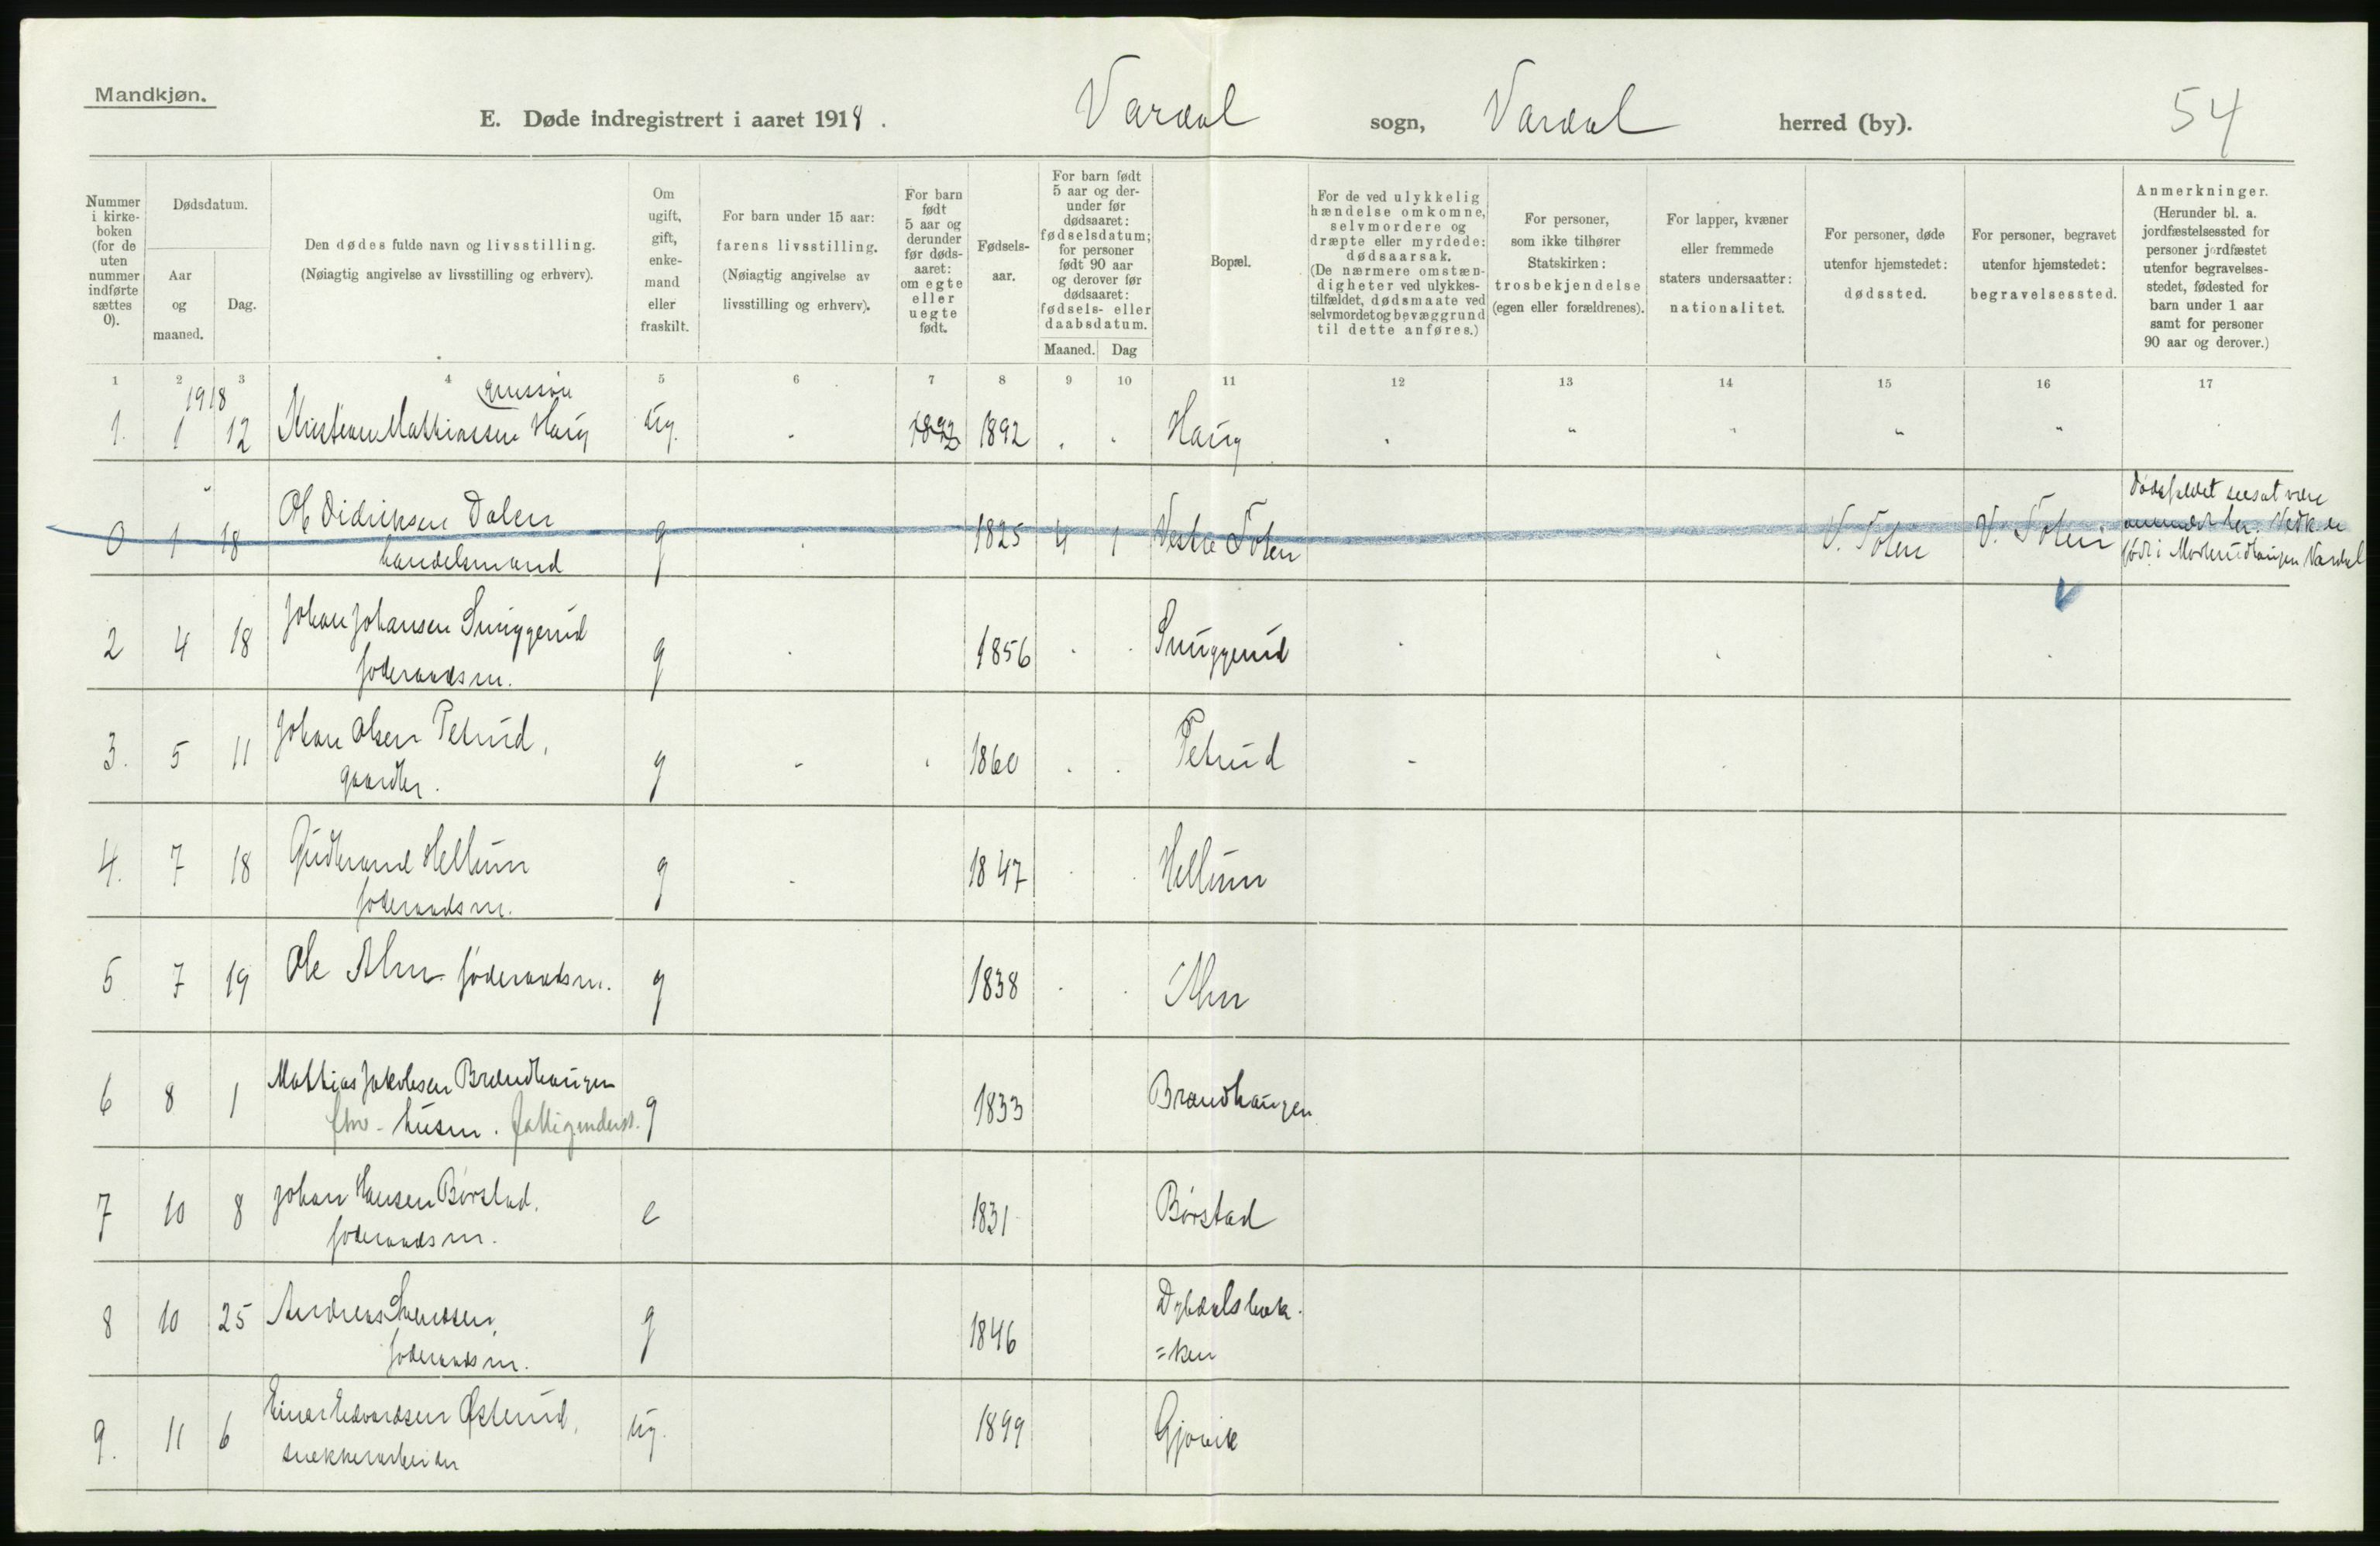 Mandkjøn.
E. Døde indregistrert i aaret 1918.
Vardal sogn, Vardal herred (by).
54
Nummer i kirke-boken (for de uten nummer indførte sættes 0).
Dødsdatum.
Aar og maaned.
Dag.
Den dødes fulde navn og livsstilling.
(Nøiagtig angivelse av livsstilling og erhverv).
Om ugift, gift, enke-mand eller fraskilt.
For barn under 15 aar: farens livsstilling.
(Nøiagtig angivelse av livsstilling og erhverv).
For barn født 5 aar og derunder før døds-aaret: om egte eller uegte født.
Fødsels-aar.
For barn født 5 aar og der-under før dødsaaret: fødselsdatum; for personer født 90 aar og derover før dødsaaret: fødsels- eller daabsdatum.
Maaned.
Dag
Bopæl.
For de ved ulykkelig hændelse omkomne, selvmordere og dræpte eller myrdede: dødsaarsak.
(De nærmere omstæn-digheter ved ulykkes-tilfældet, dødsmaate ved selvmordet og bevæggrund til dette anføres.)
For personer, som ikke tilhører Statskirken: trosbekjendelse (egen eller forældrenes).
For lapper, kvæner eller fremmede staters undersaatter: nationalitet.
For personer, døde utenfor hjemstedet: dødssted.
For personer, begravet utenfor hjemstedet: begravelsessted.
Anmerkninger.
(Herunder bl. a. jordfæstelsessted for personer jordfæstet utenfor begravelses-stedet, fødested for barn under 1 aar samt for personer 90 aar og derover.)
1 2 3 4 5 6 7 8 9 10 11 12 13 14 15 16 17
1918
1. 1 12 Kristian Mathiassen Haug ug. 1892 1892 Haug
0 1 18 Ole Didriksen Dalen
handelsmand g 1825 4 1 Vestre Toten V. Toten V. Toten
født i Vardal
2 4 18 Johan Johansen Snuggerud
føderaadsm. g 1856 Snuggerud
3. 5 11 Johan Olsen Petrud,
gaardbr. g 1860 Petrud
4. 7 18 Gudbrand Hellum
føderaadsm. g 1847 Hellum
5 7 19 Ole Alm føderaadsm. g 1838 Alm
6 8 1 Mathias Jakobsen Brændhaugen
husm. g 1833 Brændhaugen
7 10 8 Johan Hansen Børstad,
føderaadsm. e 1831 Børstad
8 10 25 Andreas Svendsen,
føderaadsm. g 1846 Dybdalsbak=
=ken
9. 11 6 Einar Edvardsen Østerud,
snekkerarbeider ug. 1899 Gjøvik